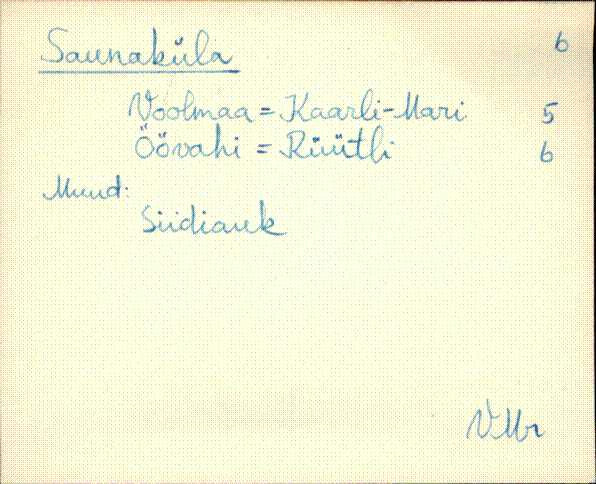 Saunaküla 6
Voolmaa = Kaarli-Mari 5
Öövahi = Rüütli 6
Muud:
Siidiauk
VMr